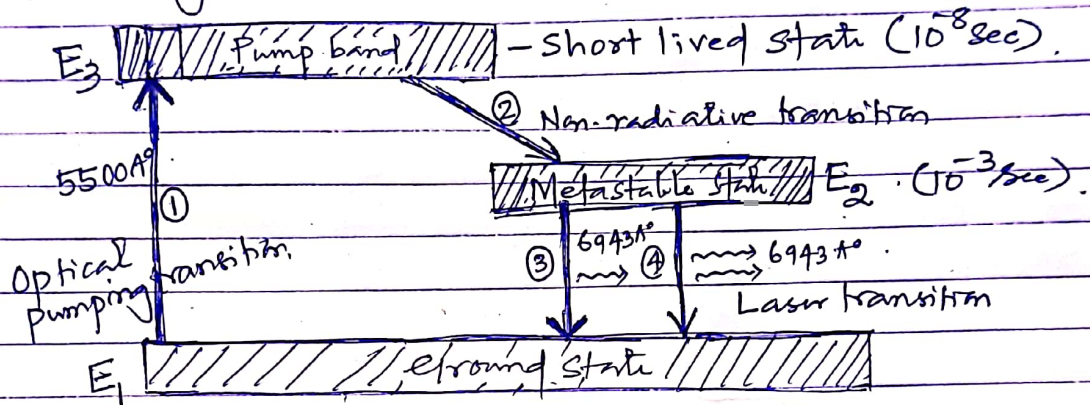 E3 Pump band - Short lived state (10^-8 sec).
② Non-radiative transition
5500A° ①
Metastable state E2 . (10^-3 sec).
Optical pumping transition.
③ 6943A° ④ 6943A° .
Laser transition
E1 Ground state